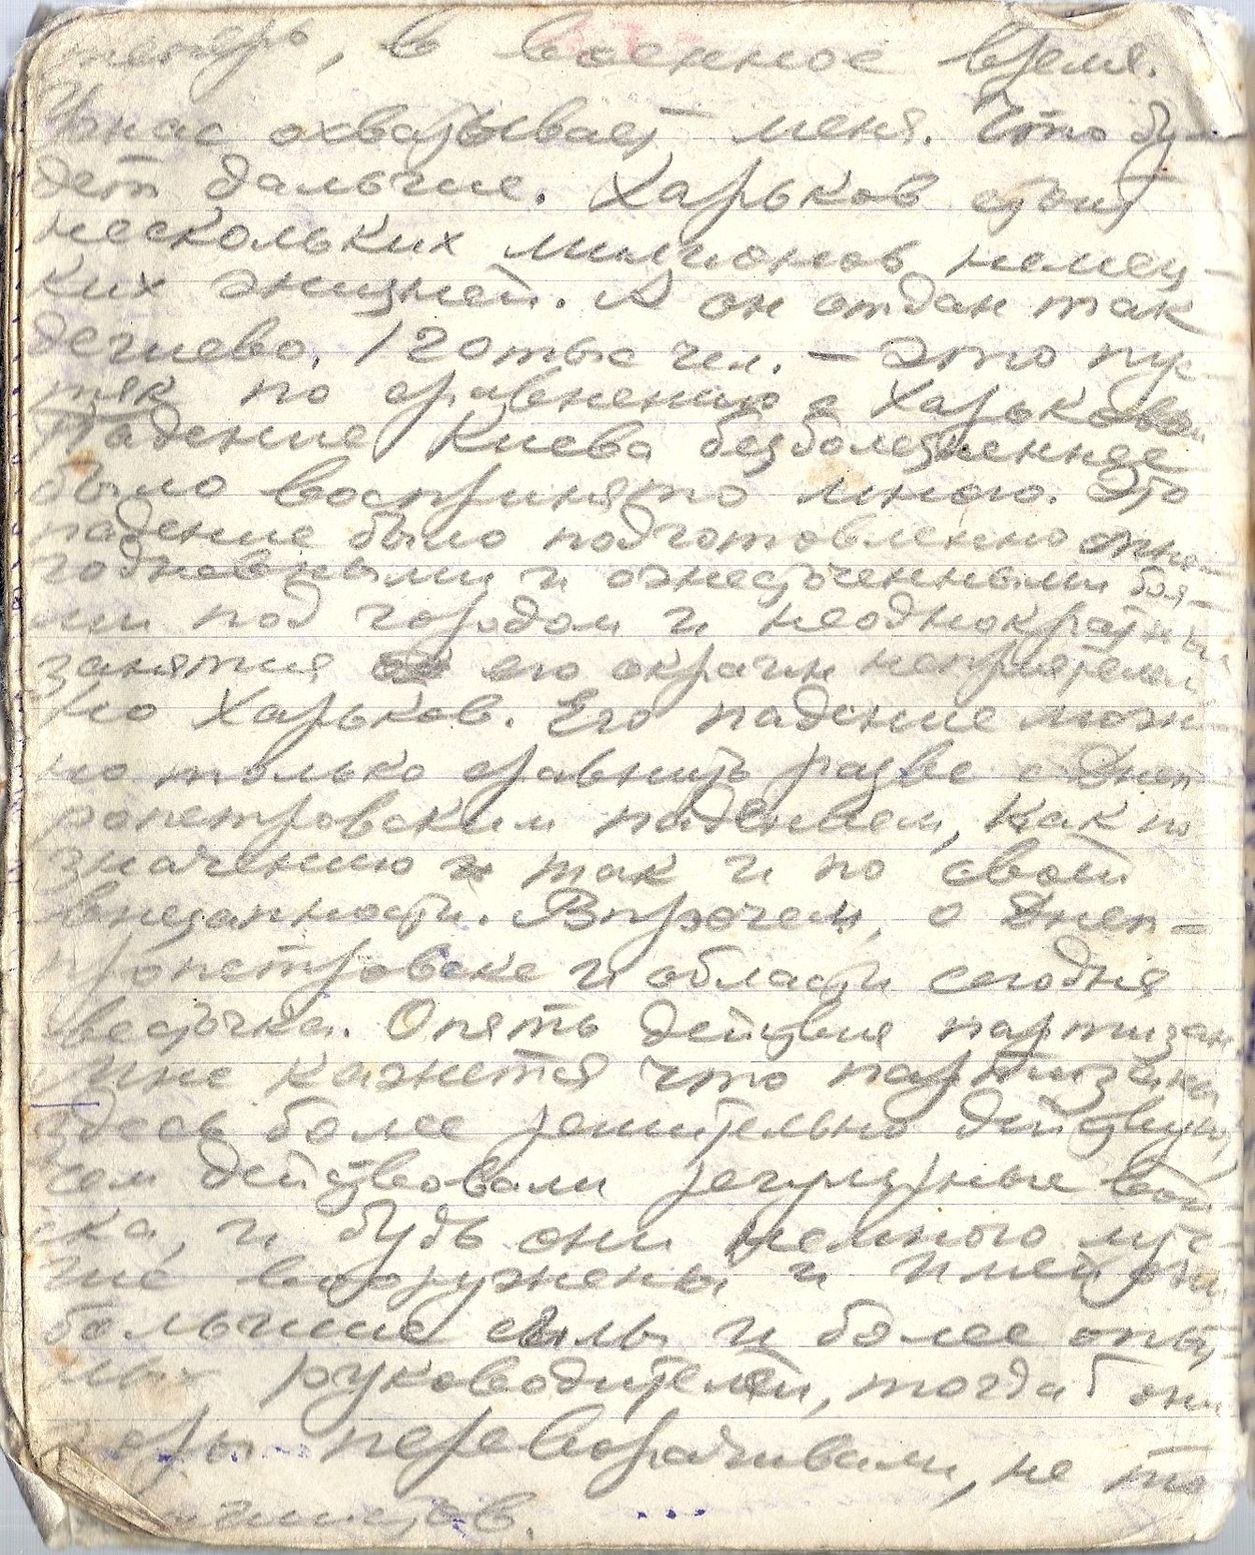 теперь, в военное время.
Ужас охватывает меня. Что бу-
дет дальше. Харьков стоит
нескольких милионов немец-
ких жизней. А он отдан так
дешево. 120 тыс чел. – это пус-
тяк по сравнению с Харьковом
Падение Киева безболезненнее
было воспринято мною. Это
падение было подготовленно
и ожесточенными боя-
ми под городом и неоднократным
занятие его окраин неприятелем
Но Харьков. Его падение мож-
но только сравнить разве с Днеп
ропетровским падением, как по
значению так и по своей
внезапности. Впрочем, о Днеп-
пропетровске и области сегодня
весточка. Опять действия партизан
Мне кажется что партизаны
здесь более решительно действуют,
чем действовали регулярные вой-
ска, и будь они немного луч-
ше вооружены и имей они
большие силы и более опыт
ных руководителей, тогда б они
горы переворачивали, не то
фашистов.